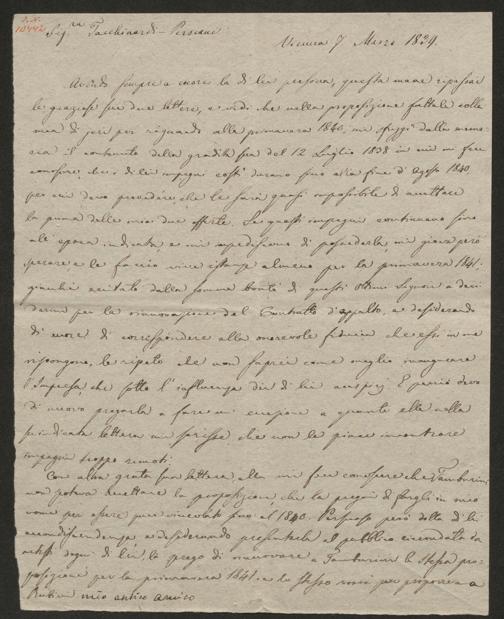 10442
Sig.ra Tacchinardi-Persiani
Vienna 7 Marzo 1839.
Avendo sempre a cuore la di lei persona, questa mane ripassai
le graziose sue due lettere, e vidi che nella proposizione fattale colla
mia di jeri per riguardo alla primavera 1840, mi sfuggì dalla memo-
ria il contenuto della gradita sua del 12 Luglio 1838 in cui mi fece
conoscere, che i di lei impegni costì durano fino alla fine d'agosto 1840
per cui devo prevedere, che le sarà quasi impossibile di accettare
la prima delle mie due offerte. Se questi impegni continuano sino
all'epoca indicata e mi impediscono di possederla, mi giova però
sperare e le faccio vive istanze almeno per la primavera 1841.
giacchè eccitato dalla somma bontà di questi Ottimi Signori a deci-
dermi per la rinnovazione del Contratto d'appalto, e desiderando
di cuore di corrispondere alla onorevole fiducia che essi in me
ripongono, le ripeto che non saprei come meglio inaugurare
l'Impresa, che sotto l'influenza dei di lei auspizj. E perciò devo
di nuovo pregarla a fare un' eccezione a quanto ella nella
preindicata lettera mi scrisse, che non le piace incontrare
impegni troppo remoti.
Con altra grata sua lettera, ella mi fece conoscere che Tamburini
non poteva accettare la proposizione, che la pregai di fargli in mio
nome per essere pure vincolato fino al 1840. Persuaso però della di lei
accondiscendenza, e desiderando presentarla al pubblico circondata da
artisti degni di lei, la prego di rinnovare a Tamburini la stessa pro-
posizione per la primavera 1841. e lo stesso vorrei pur proporre a
Rubini mio antico amico